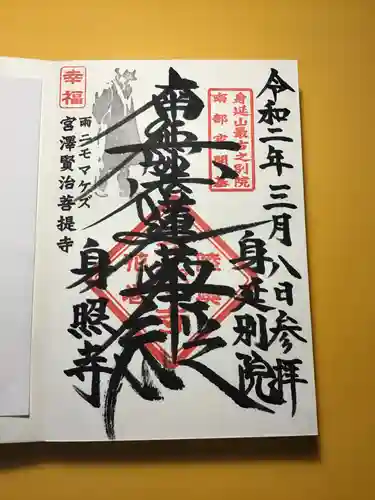 令和二年三月八日参拝
身延山最古之別院
南部実開基
身延別院
南無妙法蓮華経
幸福
雨ニモマケズ
宮澤賢治菩提寺
身照寺